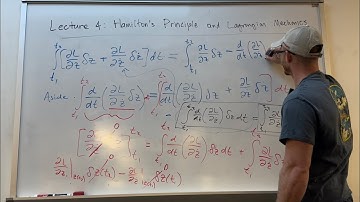 Lecture 4: Hamilton's Principle and Lagrangian Mechanics
∫_{t₁}^{t₂} [∂L/∂z δz + ∂L/∂ż δż] dt = ∫_{t₁}^{t₂} ∂L/∂z δz − d/dt (∂L/∂ż
Aside: ∫_{t₁}^{t₂} d/dt (∂L/∂ż δz) = ∫ d/dt (∂L/∂ż) δz + ∂L/∂ż δż
[∂L/∂ż δz]_{t₁}^{t₂} = ∫_{t₁}^{t₂} d/dt (∂L/∂ż) δz dt + ∫_{t₁}^{t₂} ∂L/∂ż δż
− ∫ d/dt (∂L/∂ż) δz dt = ∫
0
∂L/∂ż|_{z(t₂)} δz(t₂) − ∂L/∂ż|_{z(t₁)} δz(t₁)
0